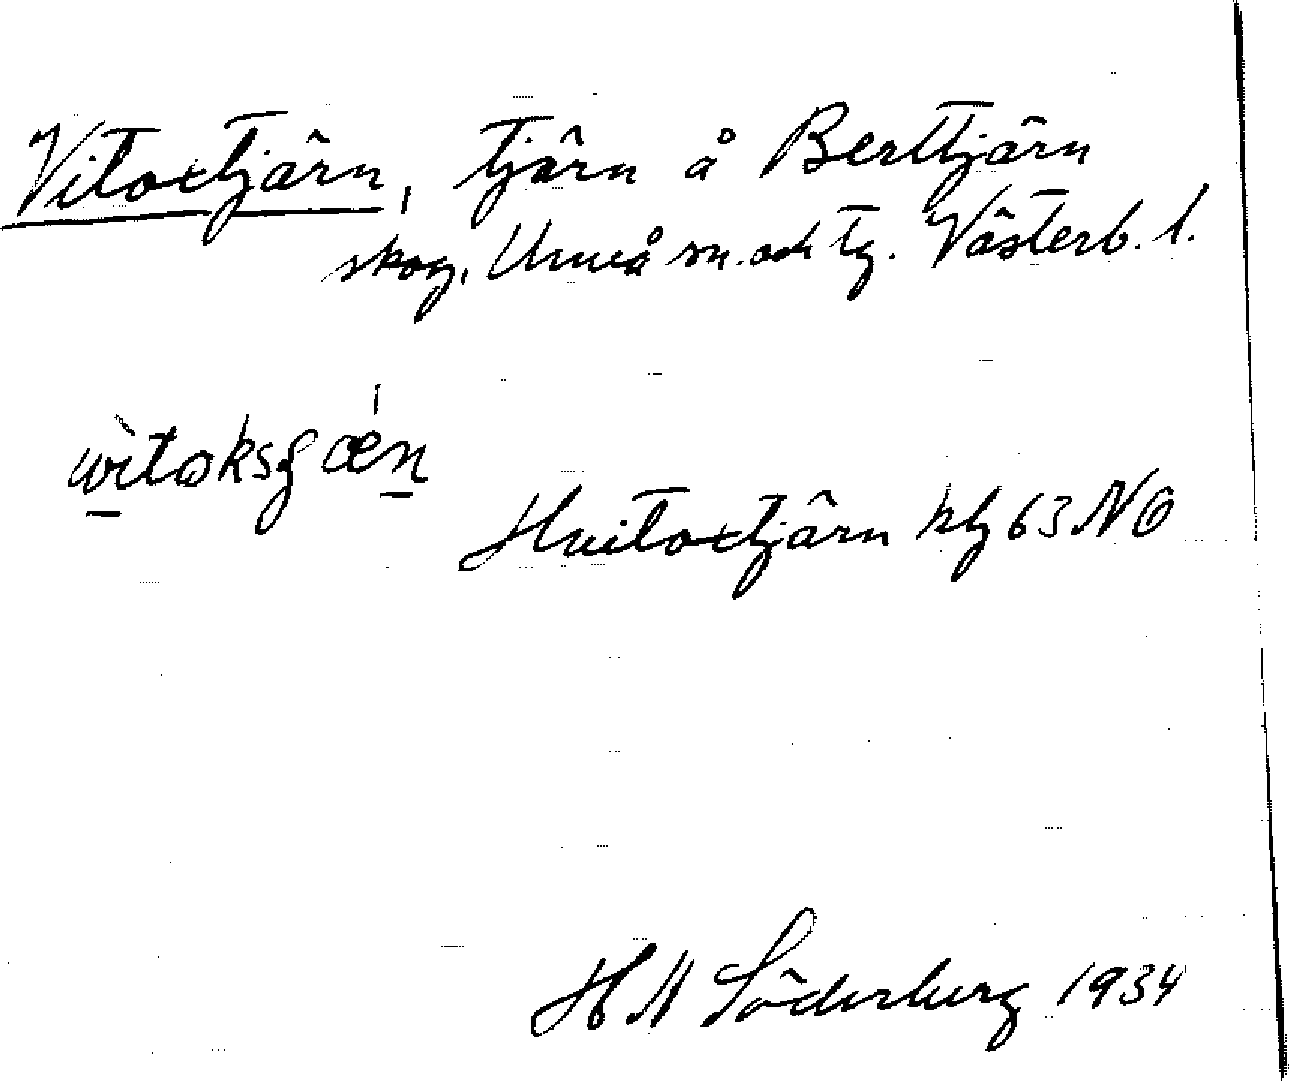 Vitoxtjärn, tjärn å Berttjärn
skog, Umeå sn. och tg. Västerb. l.
Hvitoxtjärn hg 63 NO
H N Söderberg 1934